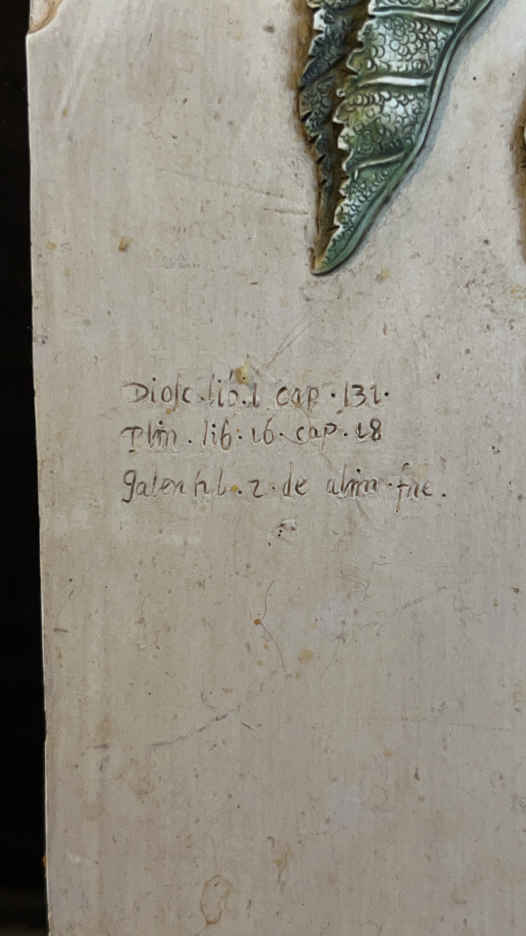 Diosc.lib.1 cap.131.
Plin.lib.16.cap.18
galen lib.2.de alim.